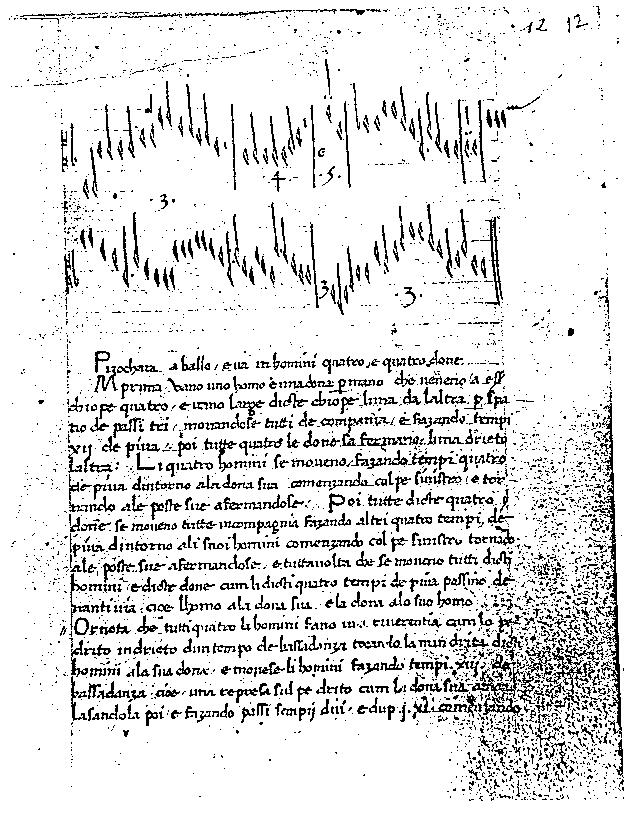 12 12
4 .5.
.3.
3 .3.
Pizochara a ballo, e va in homini quatro, e quatro done
M prima vano uno homo e una dona p mano che veneno a esser
chiope quatro, e vano large diste chiope luna da laltra p spa
tio de passi trei, movandose tutti de compania, e fazando tempi
xij de piva, e poi tutte quatro le done sa fermano, luna drieto
laltra. Li quatro homini se moveno, fazando tempi quatro
de piva dintorno ala dona sua comenzando col pe sinistro, e tor
nando ale poste sue afermandose. Poi tutte dicte quatro
done se moveno tutte incompagnia fazando altri quatro tempi, de
piva dintorno ali suoi homini comenzando col pe sinistro tornado
ale poste sue afermandose, e tuttavolta che se moveno tutti dicti
homini e dicte done cum li dicti quatro tempi de piva passino de
nanti via, cioe lhomo ala dona sua e la dona alo suo homo
Or nota che tutti quatro li homini fano una riverentia cum lo pe
drito indrieto dun tempo de bassadanza tocando la man drita dicti
homini ala sua dona, e movese li homini fazando tempi xij de
bassadanza cioe una represa sul pe drito cum la dona sua
lasandola poi e fazando passi sempij dui, e dup j. xl. comenzando